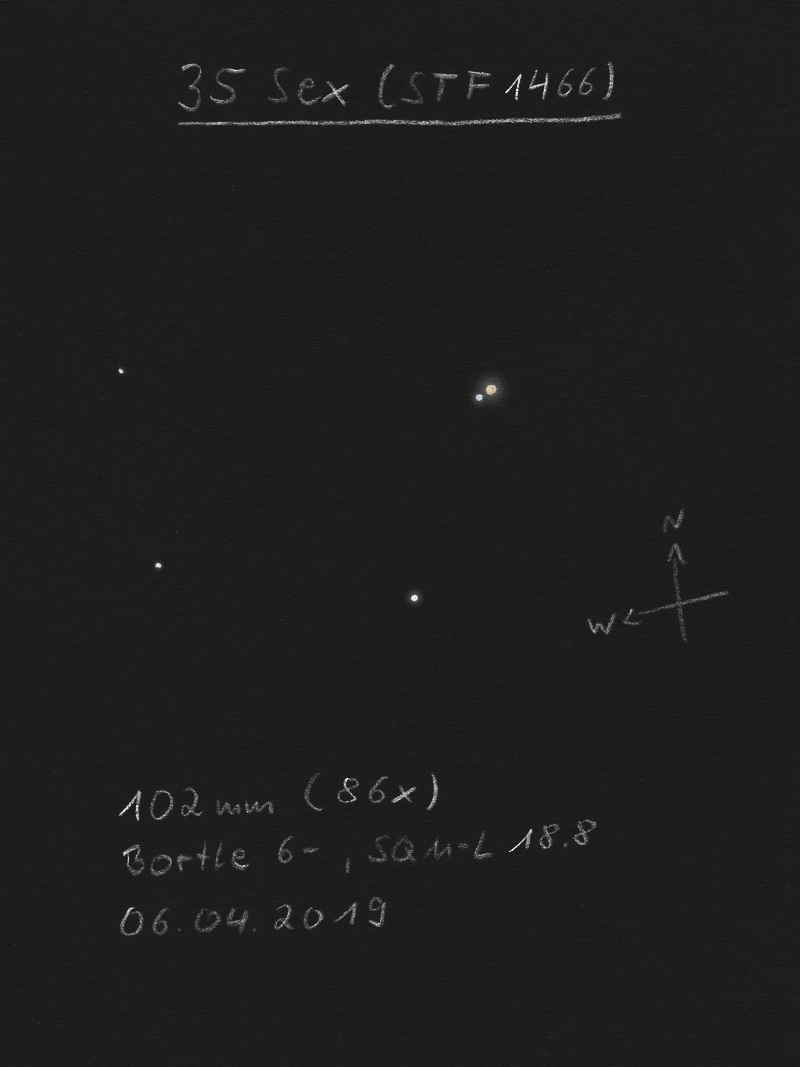 35 Sex (STF 1466)
N
W
102mm (86x)
Bortle 6-, SQM-L 18.8
06.04.2019